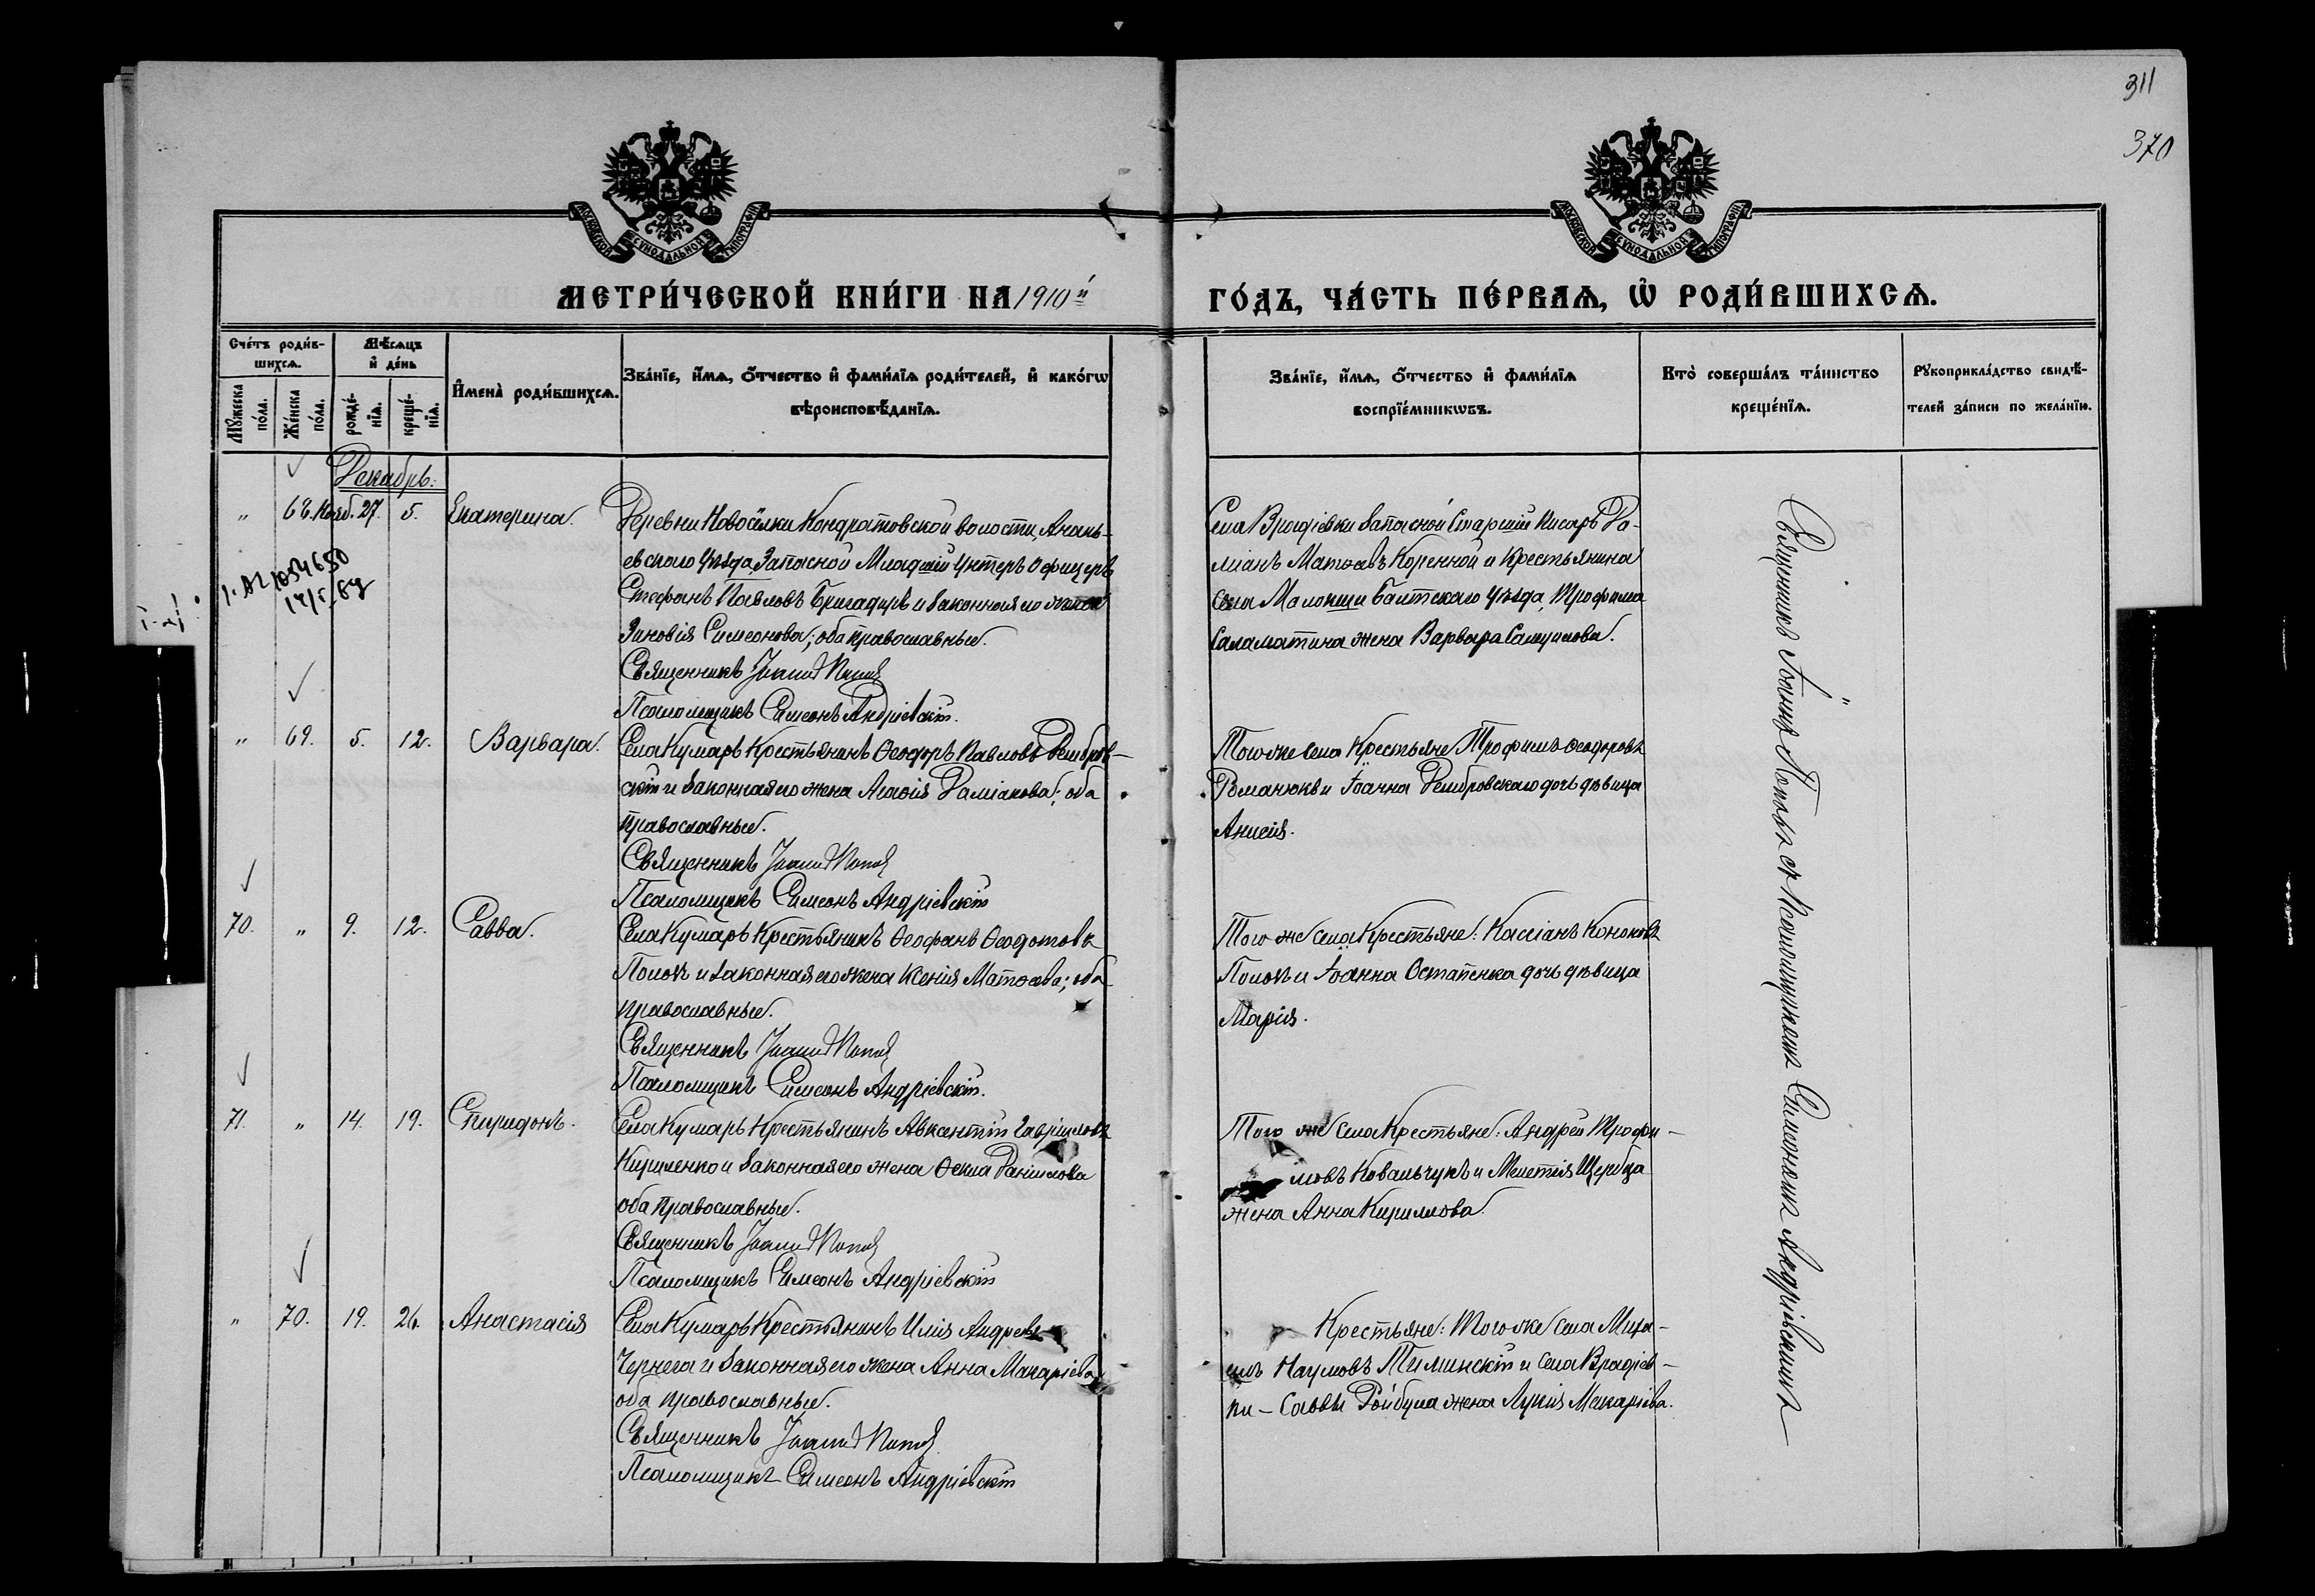 311
370
МОСКОВСКОЙ СѴНОДАЛЬНОЙ ТИПОГРАФІИ
МОСКОВСКОЙ СѴНОДАЛЬНОЙ ТИПОГРАФІИ
МЕТРИ́ЧЕСКОЙ КНИ́ГИ НА 1910й
ГО́ДЪ, ЧА́СТЬ ПЕ́РВАѦ, Ѡ҆ РОДИ́ВШИХСѦ.
Сче́тъ роди́в-
шихсѧ.
Мꙋ́жеска по́ла.
Же́нска по́ла.
Мѣ́сѧцъ
и҆ де́нь
рожде́-
нїѧ.
креще́-
нїѧ.
И҆мена̀ роди́вшихсѧ.
Зва́нїе, и҆́мѧ, ѻ҆́тчество и҆ фами́лїѧ роди́телей, и҆ како́гѡ
вѣроисповѣ́данїѧ.
Зва́нїе, и҆́мѧ, ѻ҆́тчество и҆ фами́лїѧ
воспрїе́мникѡвъ.
Кто̀ соверша́лъ та́инство
креще́нїѧ.
Рꙋкоприкла́дство свидѣ́-
телей за́писи по жела́нїю.
Декабрь.
" 68. Нояб. 27. 5. Екатерина.
Деревни Новосёлки Кондратовской волости, Анань-
евского Уѣзда, Запасной Младшій Унтеръ Офицеръ
Стефанъ Павловъ Бригадиръ и законная его жена
Зиновія Симеонова; оба православные.
Священникъ Іоаннъ Поповъ
Псаломщикъ Симеонъ Андріевскій.
Села Врадіевки Запасной Старшій Писарь Да-
міанъ Матѳеевъ Коренной и Крестьянина
села Балтского Уѣзда, Трофима
Саламатина жена Варвара Самуилова.
" 69. 5. 12. Варвара.
Села Кумаръ Крестьянинъ Ѳеодоръ Павловъ Дембров-
скій и законная его жена Агаѳія Даміанова; оба
православные.
Священникъ Іоаннъ Поповъ
Псаломщикъ Симеонъ Андріевскій
Того же села Крестьяне Трофимъ Ѳеодоровъ
Романюкъ и Іоанна Дембровскаго дочь дѣвица
Анисія.
70. " 9. 12. Савва.
Села Кумаръ Крестьянинъ Ѳеофанъ Ѳеодотовъ
Попикъ и законная его жена Ксенія Матѳеева; оба
православные.
Священникъ Іоаннъ Поповъ
Псаломщикъ Симеонъ Андріевскій.
Того же села Крестьяне: Кассіанъ Кононовъ
Попикъ и Іоанна Остапенка дочь дѣвица
Марія.
71. " 14. 19. Спиридонъ.
Села Кумаръ Крестьянинъ Авксентій Гавріиловъ
Кириленко и законная его жена Ѳекла Даніилова
оба православные.
Священникъ Іоаннъ Поповъ
Псаломщикъ Симеонъ Андріевскій
Того же села Крестьяне: Андрей Трофи-
мовъ Ковальчукъ и Мелетія Щербца
жена Анна Кириллова.
" 70. 19. 26. Анастасія
Села Кумаръ Крестьянинъ Илія Андреевъ
Чернега и законная его жена Анна Макаріева
оба православные.
Священникъ Іоаннъ Поповъ
Псаломщикъ Симеонъ Андріевскій
Крестьяне: Того же села Миха-
илъ Наумовъ Тиминскій и села Врадіев-
ки – Саввы Ройбула жена Лукія Макаріева.
Священникъ Іоаннъ Поповъ съ Псаломщикомъ Симеономъ Андріевскимъ